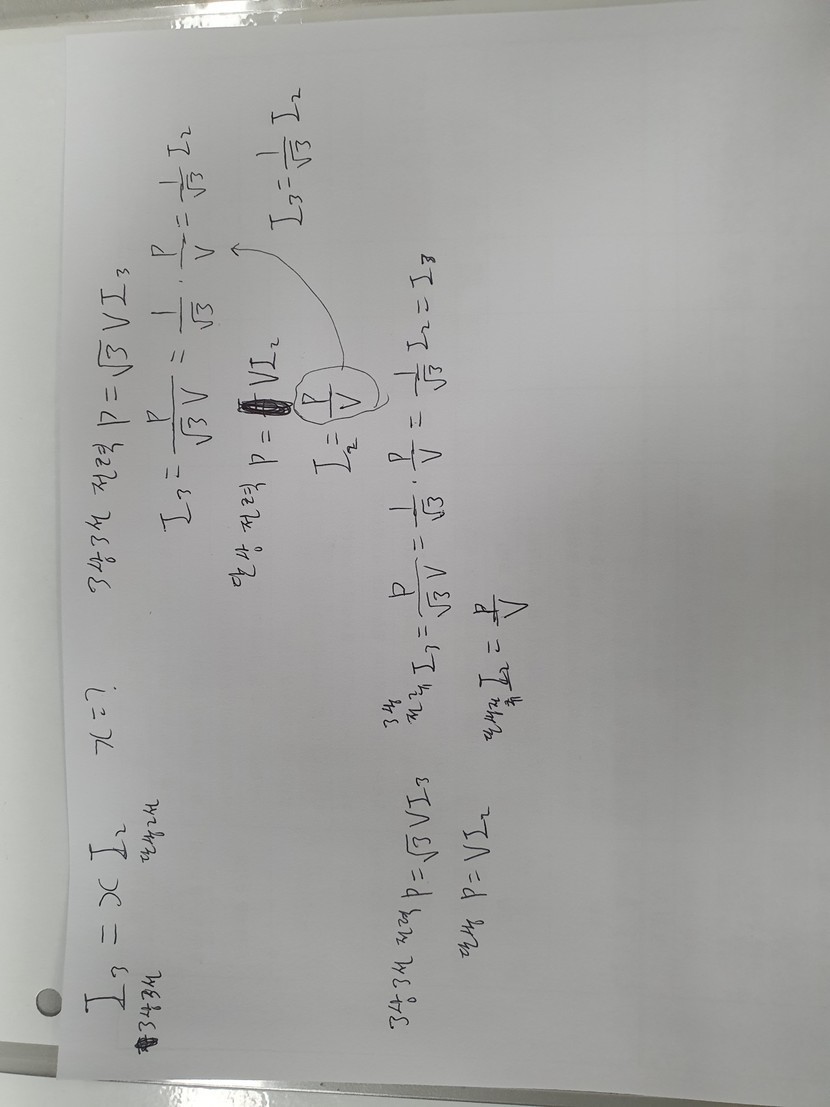 I₃ = x I₂   x=?
3상3선   단상2선
3상3선 전력 P=√3 V I₃
I₃ = P/(√3 V) = 1/√3 · P/V = 1/√3 I₂
단상 전력 P= V I₂
I₂ = P/V
I₃ = 1/√3 I₂
3상3선 전력 P=√3 V I₃
단상 P=V I₂
3상 전류 I₃ = P/(√3 V) = 1/√3 · P/V = 1/√3 I₂ = I₃
단상전류 I₂ = P/V